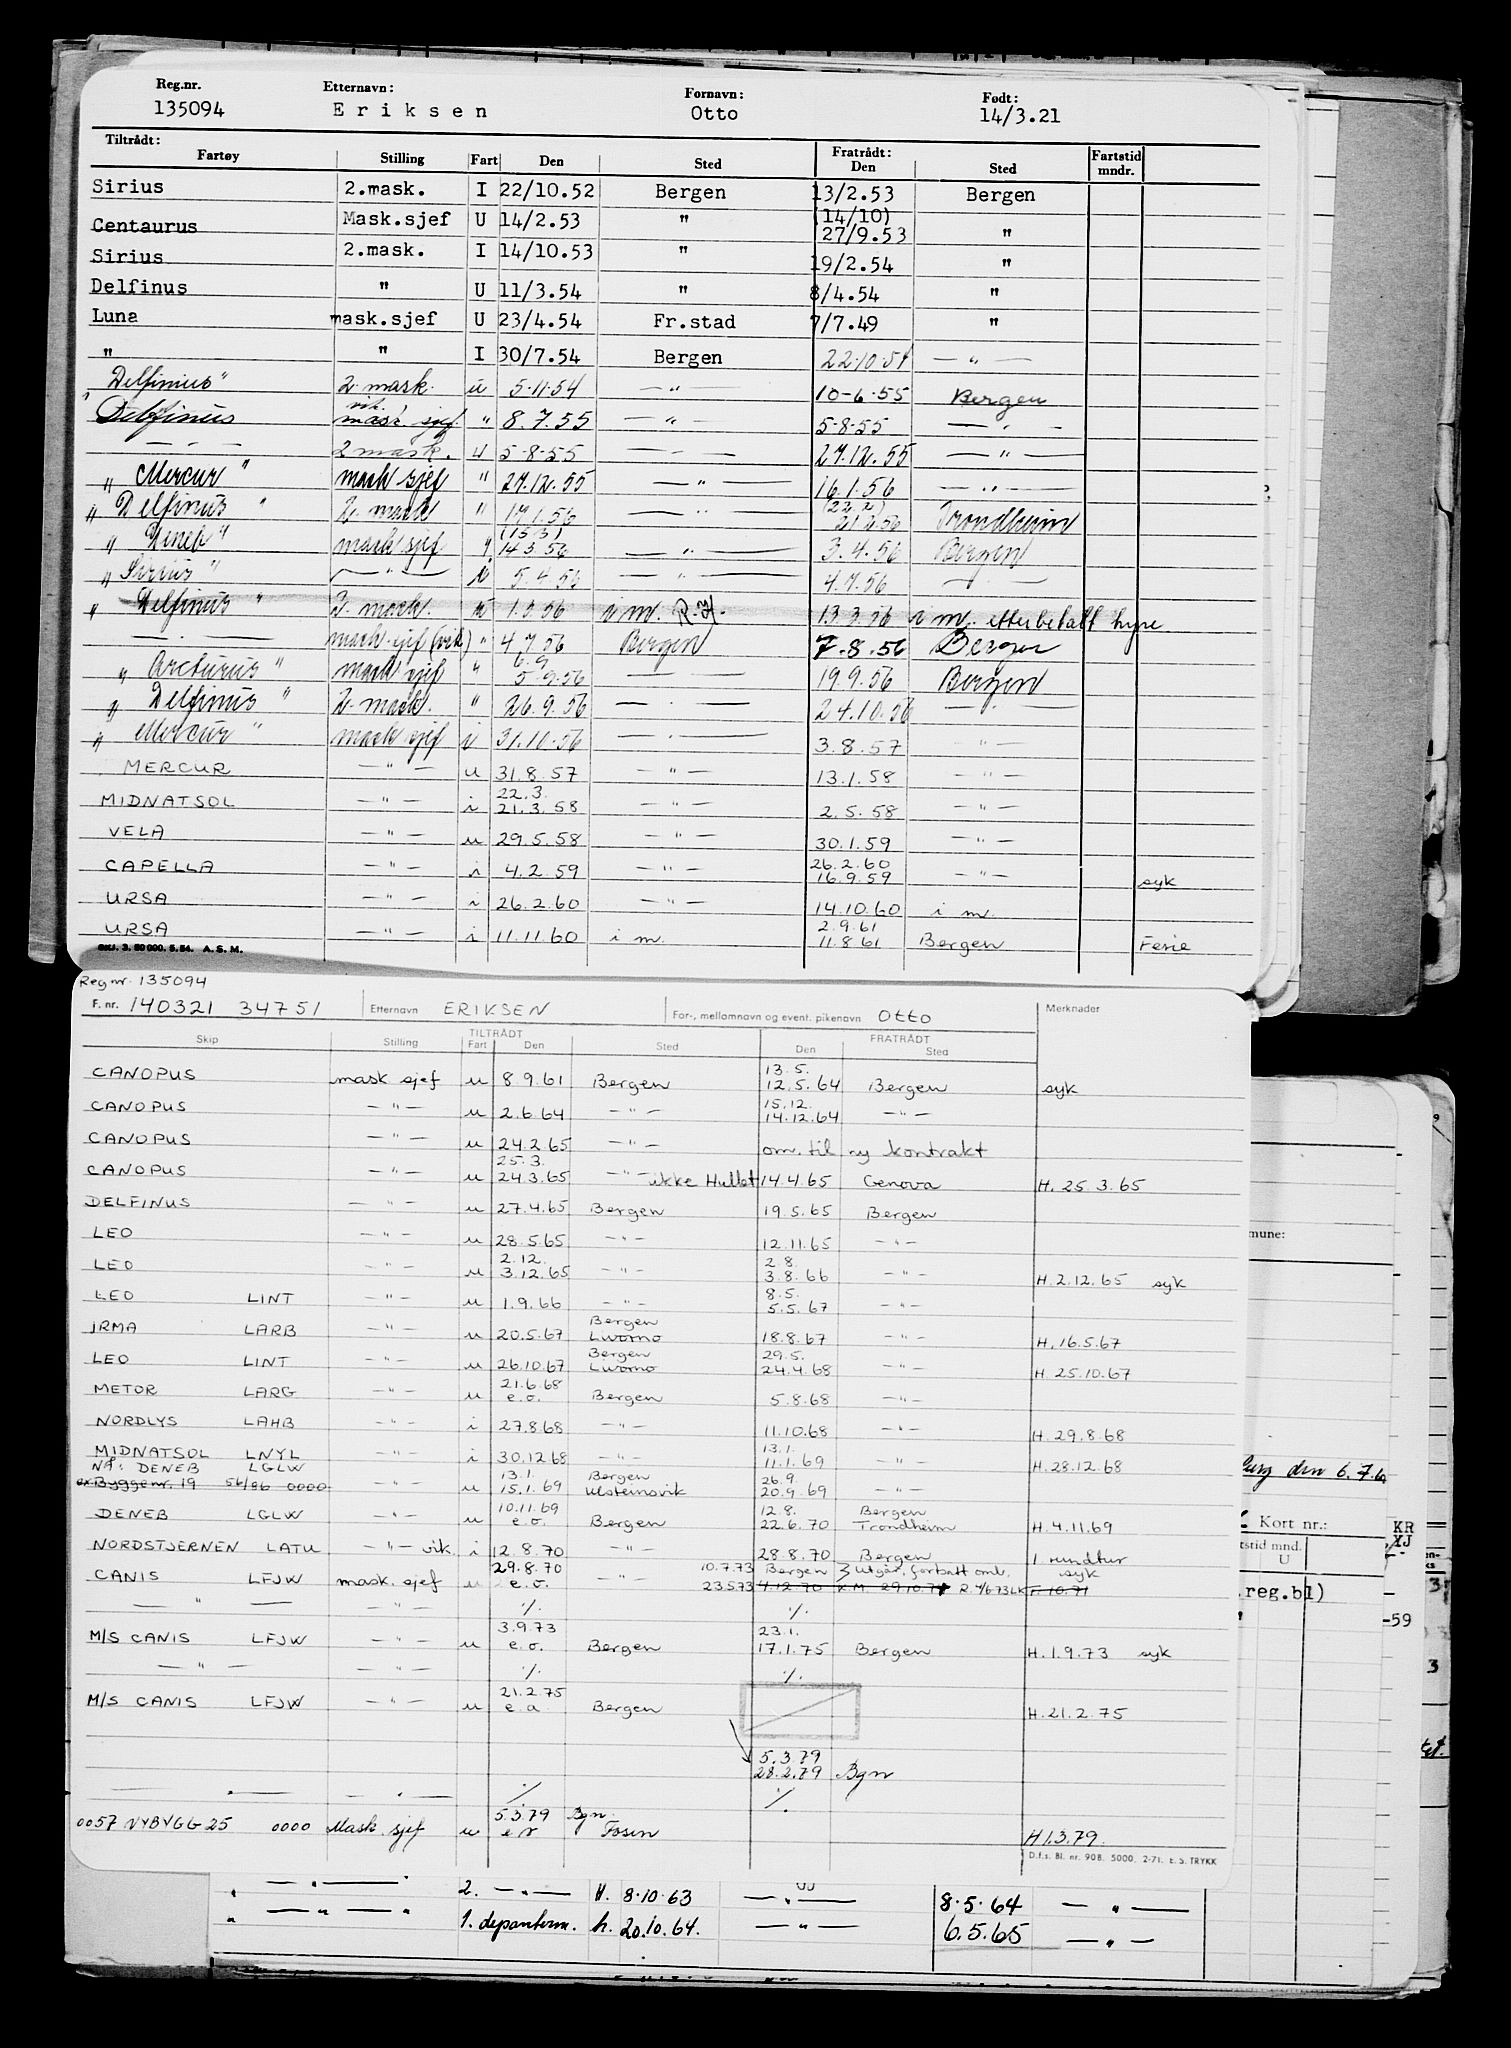 Reg.nr. Etternavn: Fornavn: Født:
135094 Eriksen Otto 14/3.21
Tiltrådt: Fratrådt:
Fartøy Stilling Fart Den Sted Den Sted Fartstid mndr.
Sirius 2.mask. I 22/10.52 Bergen 13/2.53 Bergen
Centaurus Mask.sjef U 14/2.53 " (14/10) 27/9.53 "
Sirius 2.mask. I 14/10.53 " 19/2.54 "
Delfinus " U 11/3.54 " 8/4.54 "
Luna mask.sjef U 23/4.54 Fr.stad 7/7.49 "
" " I 30/7.54 Bergen 22.10.54 — " —
Delfinius" 2. mask. u 5.11.54 — " — 10-6.55 Bergen
" Delfinus vik. mask. sjef. " 8.7.55 — " — 5-8-55 — " —
— " — 2 mask. u 5-8-55 — " — 27.12.55 — " —
" Mercur " mask sjef " 27.12.55 — " — 16.1.56 — " —
" Delfinus " 2. mask " 17.1.56 — " — (22.2) 21.2.56 Trondheim
" Deneb " mask sjef " (15.3) 14.3.56 — " — 3.4.56 Bergen
" Sirius " — " — i 5.4.56 — " — 4.7.56 — " —
" Delfinus " 2. mask. u 1.3.56 i m. 13.3.56 i m. etterbetalt hyre
— " — mask. sjef (vik) " 4.7.56 Bergen 7.8.56 Bergen
" Arcturus " mask sjef " 6.9 5.9.56 — " — 19.9.56 Bergen
" Delfinus " 2. mask. " 26.9.56 — " — 24.10.56 — " —
" Mercur " mask sjef i 31.10.56 — " — 3.8.57 — " —
MERCUR — " — u 31.8.57 — " — 13.1.58 — " —
MIDNATSOL — " — i 22.3. 21.3.58 — " — 2.5.58 — " —
VELA — " — u 29.5.58 — " — 30.1.59 — " —
CAPELLA — " — i 4.2.59 — " — 26.2.60 16.9.59 — " — syk
URSA — " — i 26.2.60 — " — 14.10.60 i m.
URSA — " — i 11.11.60 i m. 2.9.61 11.8.61 Bergen Ferie
SKJ. 3. 50 000. 5.54. A.S.M.
Reg nr. 135094
F. nr. 140321 34751 Etternavn ERIKSEN For-, mellomnavn og event. pikenavn Otto Merknader
TILTRÅDT FRATRÅDT
Skip Stilling Fart Den Sted Den Sted
CANOPUS mask sjef u 8.9.61 Bergen 13.5. 12.5.64 Bergen syk
CANOPUS — " — u 2.6.64 — " — 15.12. 14.12.64 — " —
CANOPUS — " — u 24.2.65 — " — om. til ny kontrakt
CANOPUS — " — u 25.3. 24.3.65 — " — ikke Hullet 14.4.65 Genova H. 25.3.65
DELFINUS — " — u 27.4.65 Bergen 19.5.65 Bergen
LEO — " — u 28.5.65 — " — 12.11.65 — " —
LEO — " — u 2.12. 3.12.65 — " — 2.8. 3.8.66 — " — H.2.12.65 syk
LEO LINT — " — u 1.9.66 — " — 8.5. 5.5.67 — " —
IRMA LARB — " — u 20.5.67 Bergen Livorno 18.8.67 — " — H.16.5.67
LEO LINT — " — u 26.10.67 Bergen Livorno 29.5. 24.4.68 — " — H. 25.10.67
METOR LARG — " — u 21.6.68 e.o. Bergen 5.8.68 — " —
NORDLYS LAHB — " — i 27.8.68 — " — 11.10.68 — " — H. 29.8.68
MIDNATSOL LNYL — " — i 30.12.68 — " — 13.1. 11.1.69 — " — H.28.12.68
NÅ: DENEB LGLW
ex.Byggenr. 19 56/86 0000 u 13.1. 15.1.69 Bergen Ulsteinsvik 26.9. 20.9.69 — " —
DENEB LGLW — " — u 10.11.69 e.o. Bergen 12.8. 22.6.70 Bergen Trondheim H.4.11.69
NORDSTJERNEN LATU — " — vik. i 12.8.70 — " — 28.8.70 Bergen 1 rundtur
CANIS LFJW mask. sjef u 29.8.70 e.o. — " — 10.7.73 Bergen } utgår, fortsatt omb. syk
23.5.73 4.12.70 29.10.71
— " — — " — ./. ./.
M/S CANIS LFJW — " — u 3.9.73 e.o. Bergen 23.1. 17.1.75 Bergen H.1.9.73 syk
— " — — " — ./. ./.
M/S CANIS LFJW — " — u 21.2.75 e.o. Bergen H.21.2.75
5.3.79
28.2.79 Bgn
— " — — " — ./. ./.
0057 NYBYGG 25 0000 Mask. sjef u 5.3.79 Bgn. Fosen H 1.3.79.
D.f.s. Bl. nr. 908. 5000. 2-71. E.S. TRYKK
" — " — 2. — " — U. 8.10.63 — " — 8.5.64 — " —
" — " — " 1. h. 20.10.64. — " — 6.5.65 — " —
mune:
den 6.7.6
Kort nr.:
tstid mnd.
U
.reg.bl)
KR
XJ
-59
3
3
9